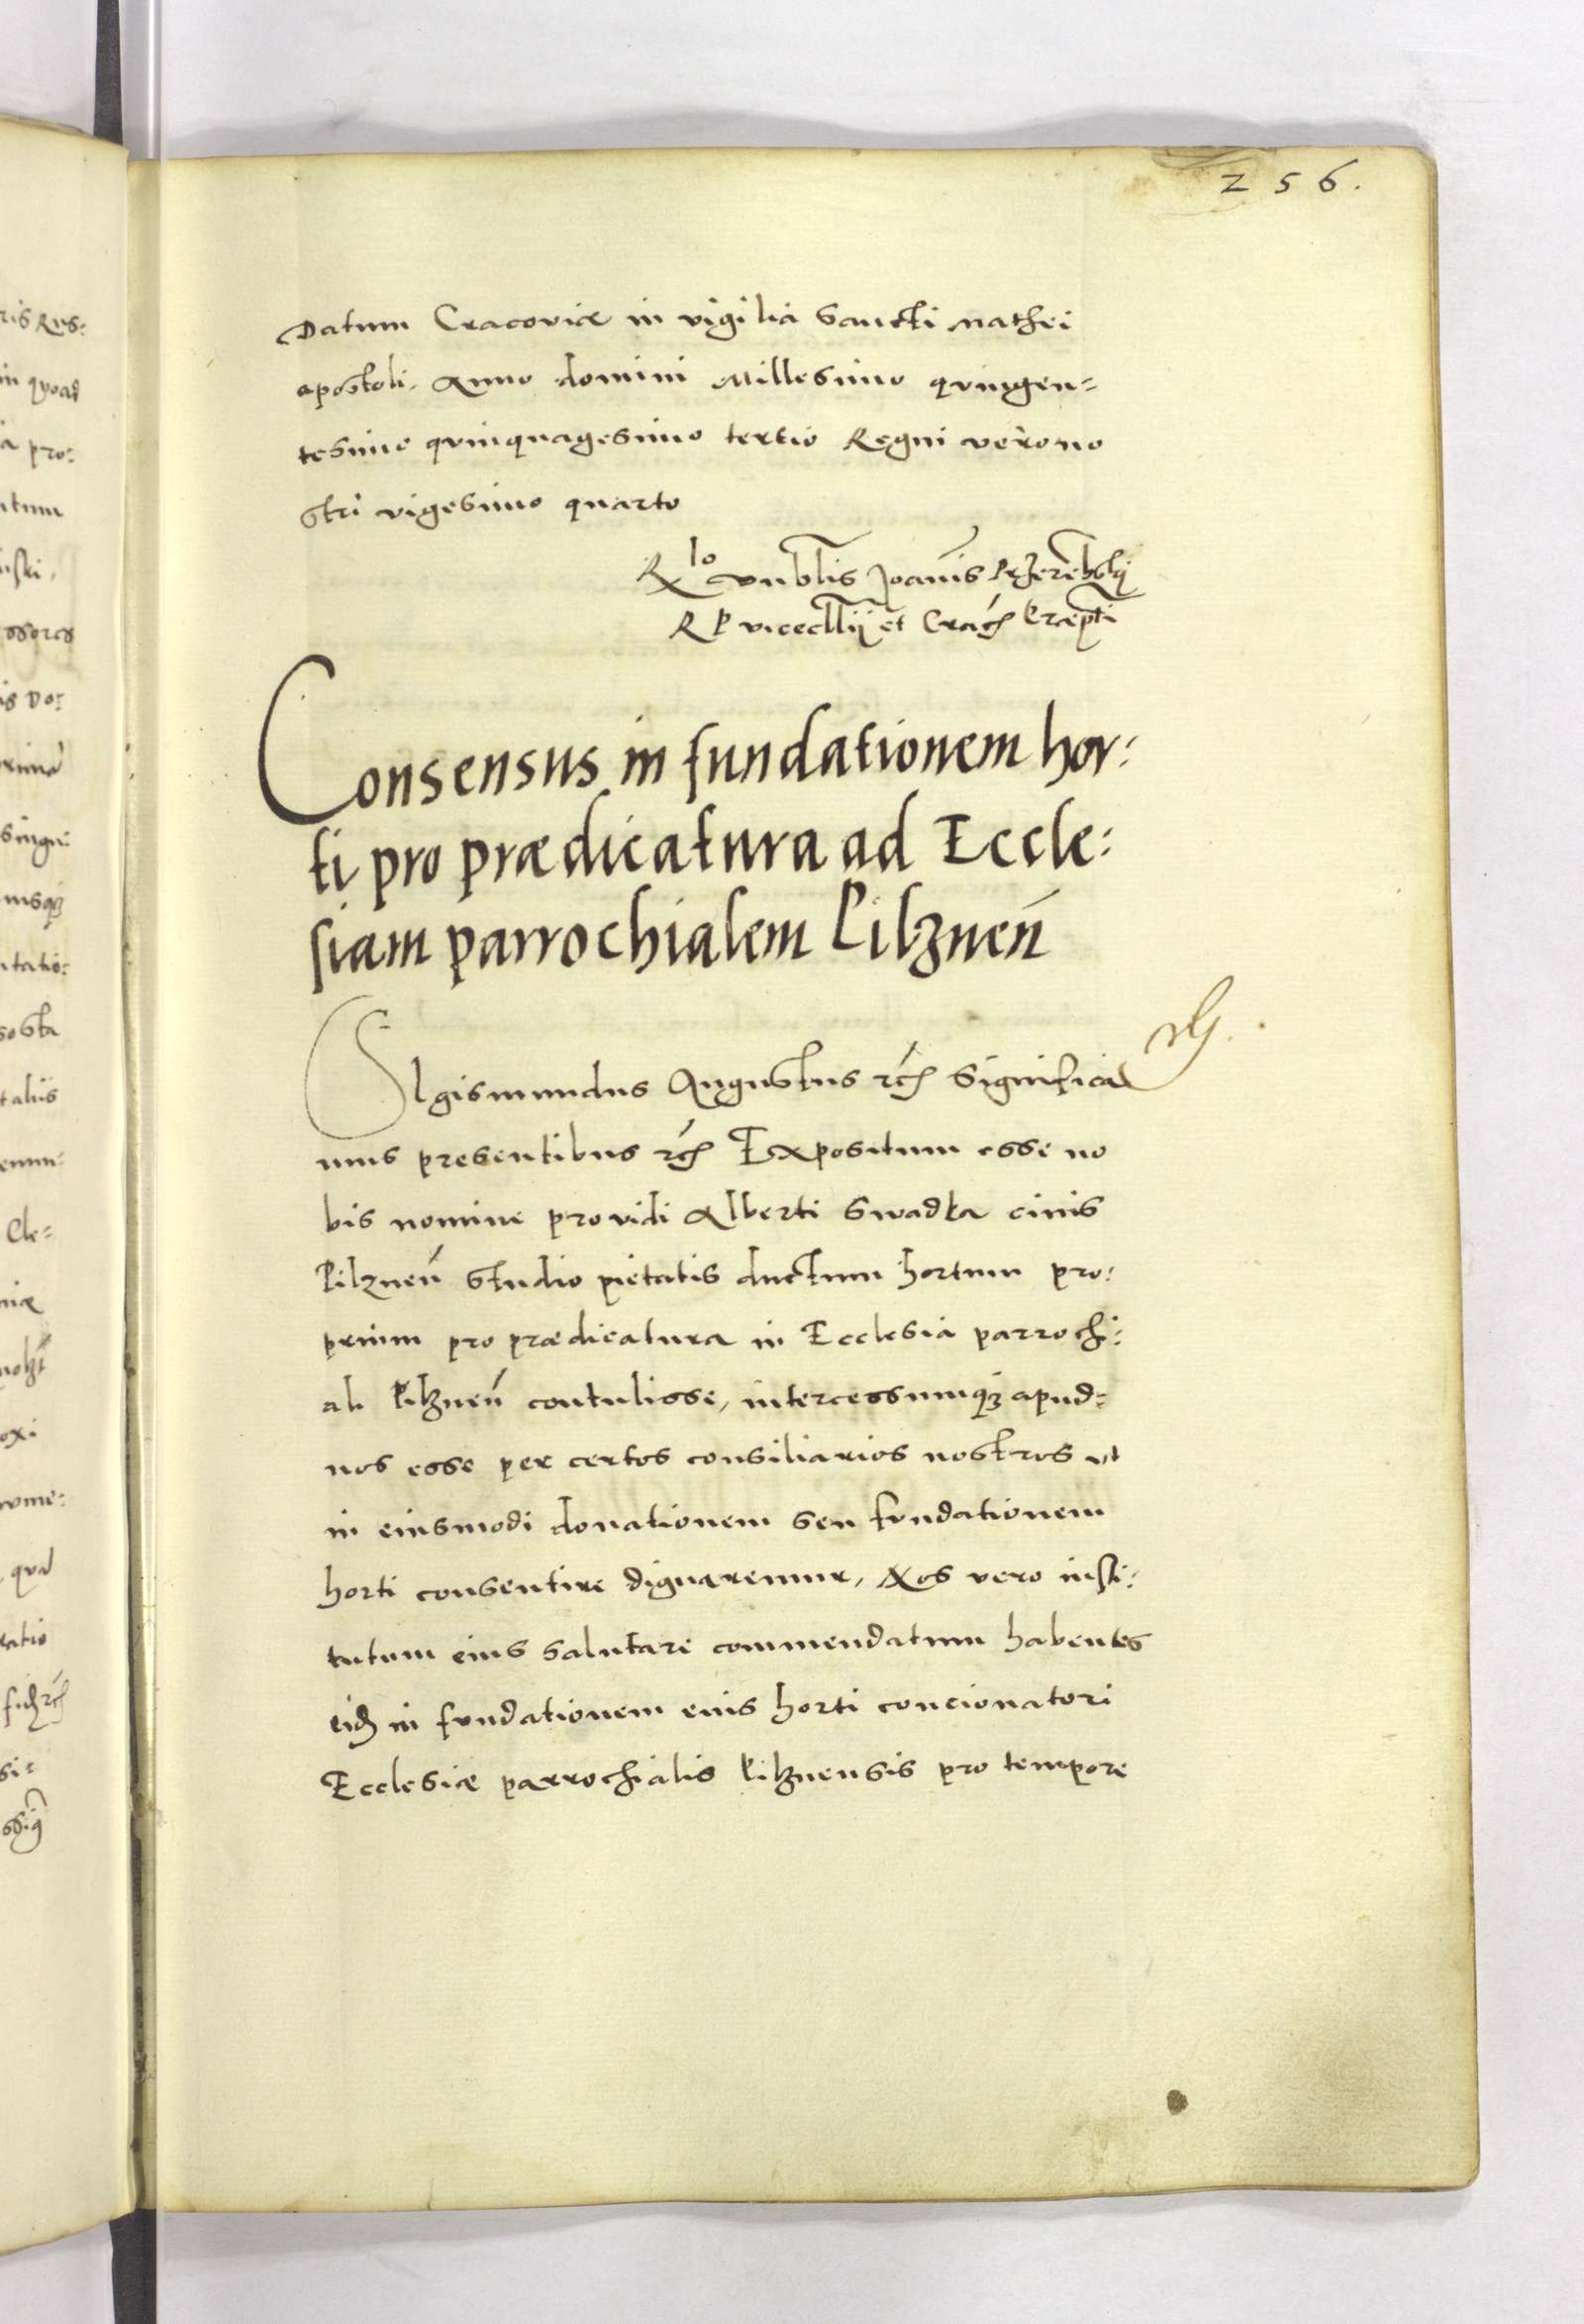 256.
Datum Cracoviæ in vigilia Sancti Mathei
apostoli. Anno domini Millesimo quingen=
tesimo quinquagesimo tertio Regni vero no
stri vigesimo quarto
Rlo Joannis Przerembsky
RP vicecllrij et Crac
Consensus in fundationem hor:
ti pro prædicatura ad Eccle:
siam parrochialem Pilznen
Sigismundus Augustus rc Significa
mus presentibus rc Expositum esse no
bis nomine providi Alberti Swadka civis
Pilznen studio pietatis ductum hortum pro:
prium pro prædicatura in Ecclesia parrochi:
ali Pilznen contulisse, intercessumq apud=
nos esse per certos consiliarios nostros ut
in eiusmodi donationem seu fundationem
horti consentire dignaremur, Nos vero insti:
tutum eius salutare commendatum habentes
eid in fundationem eius horti concionatori
Ecclesiæ parrochialis Pilznensis pro tempore